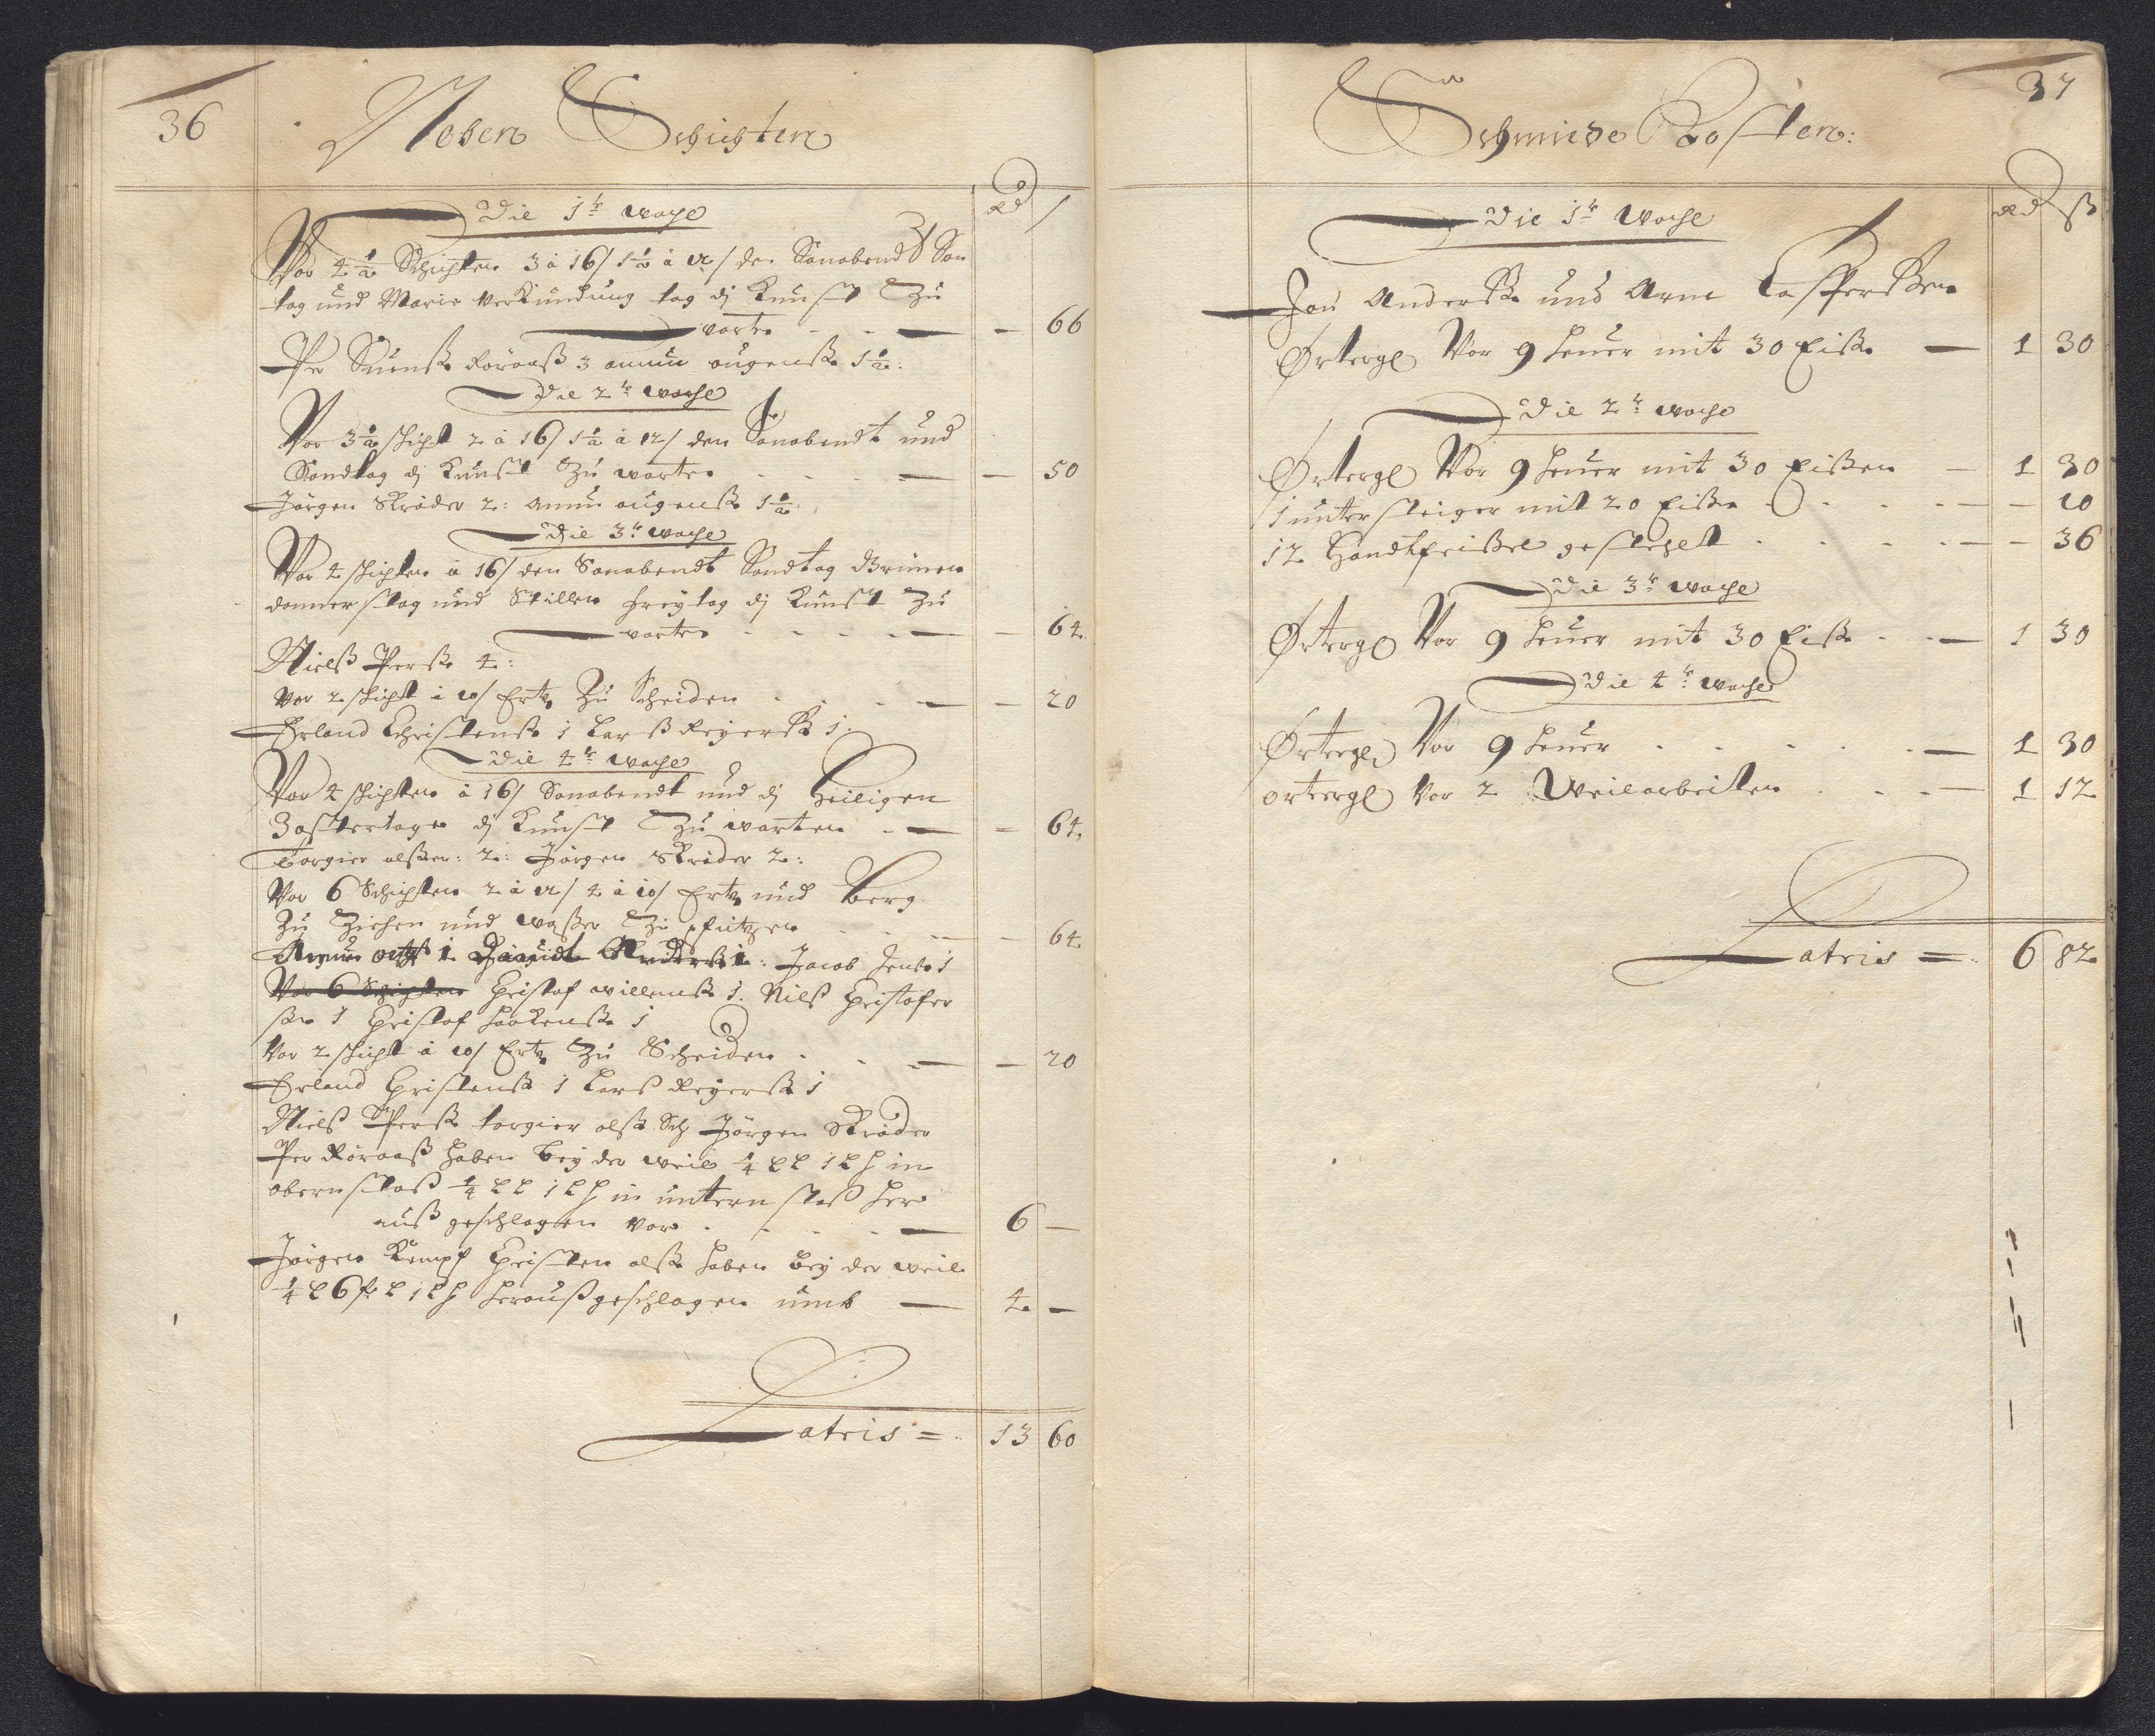 36
Neben Schichten
Rd ß
Die 1te woche
Vor 4½ Schichten 3 à 16/ 1½ à 12/ den Sonabendt Son
tag und Marie Verkündung tag di Kunst Zu
warten - - - 66
Per Suenß Röraaß 3 amun augenß 1½:
Die 2te woche
Vor 3½ schicht 2 à 16/ 1½ à 12/ den Sonabendt und
Sondtag di Kunst Zu warten - - - 50
Jörgen Skröder 2: amun augenß 1½
Die 3te woche
Vor 4 schichten à 16/ den Sonabendt Sondtag Grünen
donnerstag und Stillen freytag di Kunst Zu
warten - - - 64
Nielß Perß 4:
Vor 2 schicht à 10/ Ertz Zu Scheiden - - - 20
Erland Christenß 1 Larß Reyerß 1:
Die 4te woche
Vor 4 schichten à 16/ Sonabendt und di Heiligen
3 ostertage di Kunst Zu warten - - 64
Torgier olßen: 2: Jörgen Skröder 2:
Vor 6 Schichten 2 à 12/ 4 à 10/ Ertz und Berg
Zu Ziehen und waßer Zu pfützen - - - 64
1 Anderß 1: Jacob Jenß 1
Vor 6 Schichten Christof willumß 1. Nilß Christofer
ßen 1 Christof 1
Vor 2 schicht à 10/ Ertz Zu Scheiden - - - 20
Erland Christenß 1 Larß Reyerß 1
Nielß Perß torgier olß Jörgen Skröder
Per Röraaß haben bey der weil ¼ 1 in
obern stoß ¼ 1 in untern stoß her
auß geschlagen vor - - - 6 -
Jörgen Kempf Christen olß haben bey der weil
¼ 6 1 heraußgeschlagen umb - 4 -
Latris = 13 60
37
Schmiede Kosten:
Rd ß
Die 1te Woche
Jon Anderß und Arne Casperßen
Örtergl Vor 9 heuer mit 30 Eiß - 1 30
Die 2te woche
Örtergl Vor 9 heuer mit 30 Eißen - 1 30
1 unter steiger mit 20 Eißen - - - 20
12 Handtfeißel gestehlet - - - 36
Die 3te woche
Örtergl Vor 9 heuer mit 30 Eiß - - 1 30
Die 4te woche
Örtergl Vor 9 heuer - - - 1 30
örtergl Vor 2 Weilarbeiten - - - 1 12
Latris = 6 82